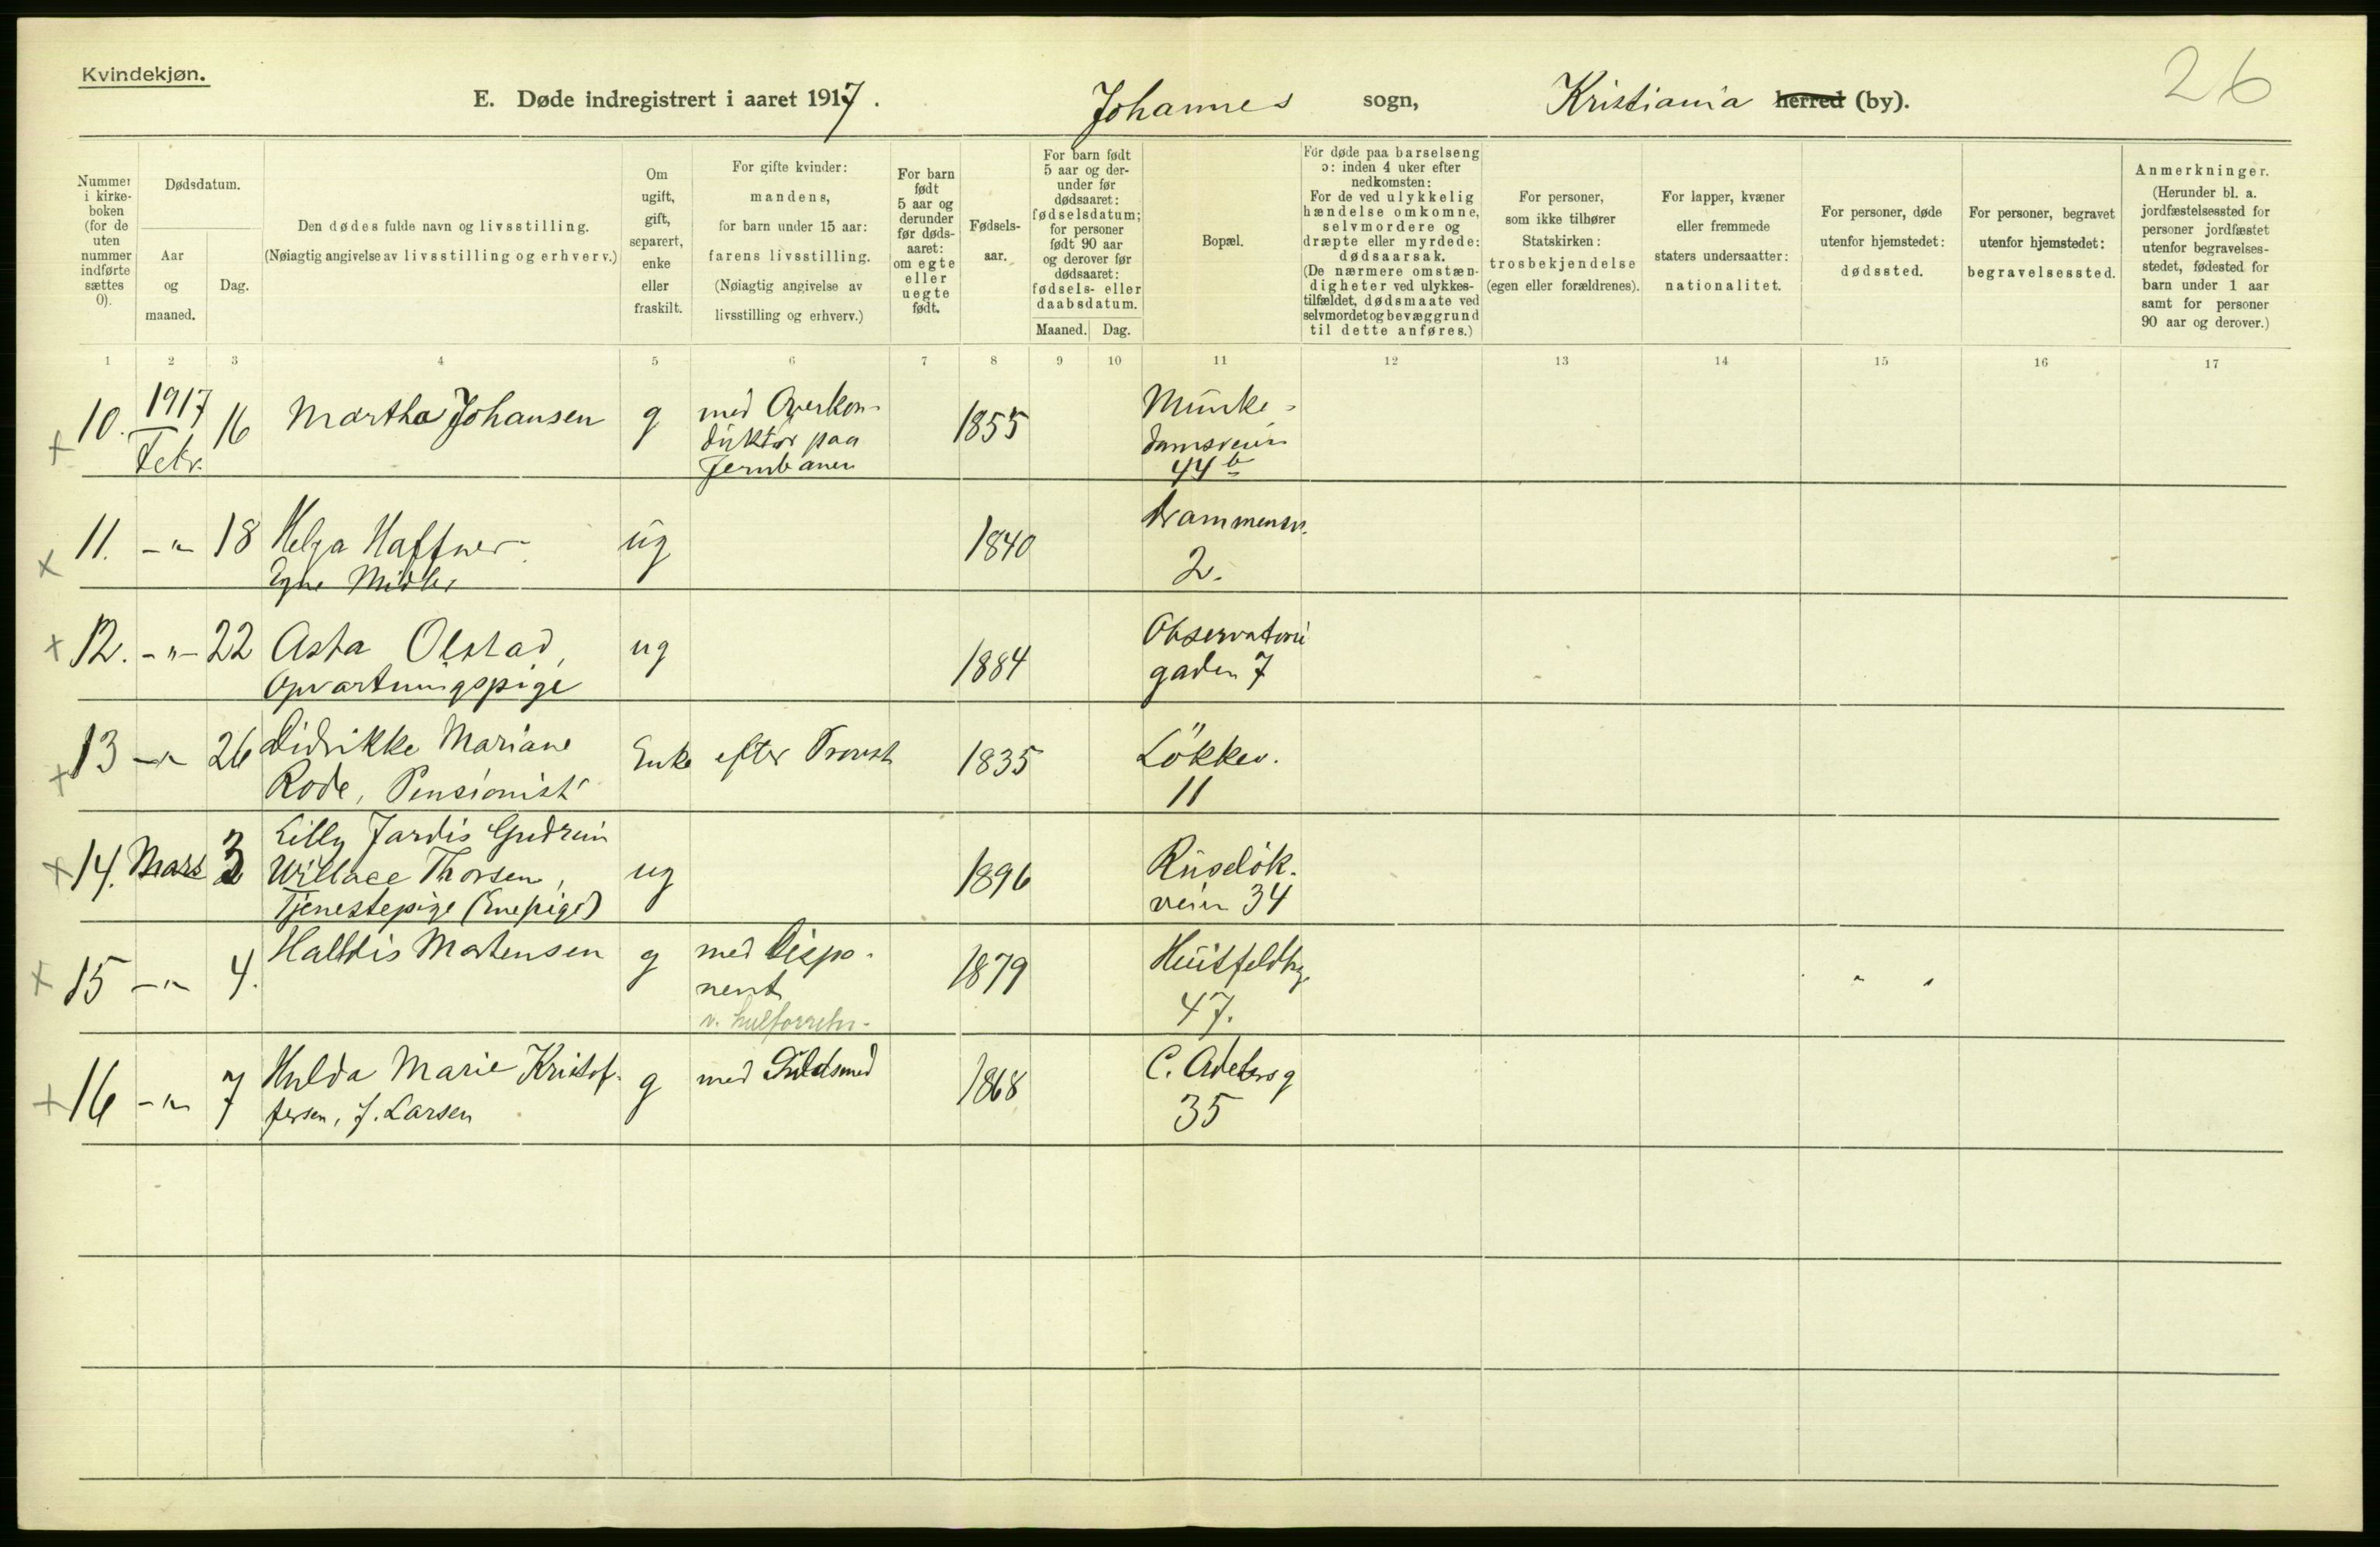 Kvindekjøn.
26
E. Døde indregistrert i aaret 1917. Johannes sogn, Kristiania herred (by).
Nummer i kirkeboken (for de uten nummer indførte sættes 0).
Dødsdatum.
Aar og maaned.
Dag.
Den dødes fulde navn og livsstilling.
(Nøiagtig angivelse av livsstilling og erhverv.)
Om ugift, gift, separert, enke eller fraskilt.
For gifte kvinder: mandens, for barn under 15 aar: farens livsstilling. (Nøiagtig angivelse av livsstilling og erhverv.)
For barn født 5 aar og derunder før dødsaaret: om egte eller uegte født.
Fødselsaar.
For barn født 5 aar og derunder før dødsaaret: fødselsdatum; for personer født 90 aar og derover før dødsaaret: fødsels- eller daabsdatum.
Maaned. Dag.
Bopæl.
For døde paa barselseng ɔ: inden 4 uker efter nedkomsten: For de ved ulykkelig hændelse omkomne, selvmordere og dræpte eller myrdede: dødsaarsak. (De nærmere omstændigheter ved ulykkestilfældet, dødsmaate ved selvmordet og bevæggrund til dette anføres.)
For personer, som ikke tilhører Statskirken: trosbekjendelse (egen eller forældrenes).
For lapper, kvæner eller fremmede staters undersaatter: nationalitet.
For personer, døde utenfor hjemstedet: dødssted.
For personer, begravet utenfor hjemstedet: begravelsessted.
Anmerkninger.
(Herunder bl. a. jordfæstelsessted for personer jordfæstet utenfor begravelsesstedet, fødested for barn under 1 aar samt for personer 90 aar og derover.)
1 2 3 4 5 6 7 8 9 10 11 12 13 14 15 16 17
+ 10. 1917 Febr. 16 Martha Johansen g med Overkonduktör paa Jernbanen 1855 Munkedamsveien 44 b
x 11. -"- 18 Helga Haffner. Egne Midler ug 1840 Drammensv. 2.
+ 12. -"- 22 Asta Olstad, Opvartningspige ug 1884 Observatoriegaden 7
+ 13 -"- 26 Didrikke Mariane Rode, Pensionist Enke efter Provst 1835 Lökkev. 11
+ 14. Mars 3 Lilly Jardis Gudrun Willace Thorsen, Tjenestepige (Enepige) ug 1896 Ruselök. veien 34
+ 15 -"- 4. Halldis Mortensen g med Disponent 1879 Huitfeldtsg. 47.
+ 16 -"- 7 Hulda Marie Kristoffersen, f. Larsen g med Guldsmed 1868 C. Adelersg 35